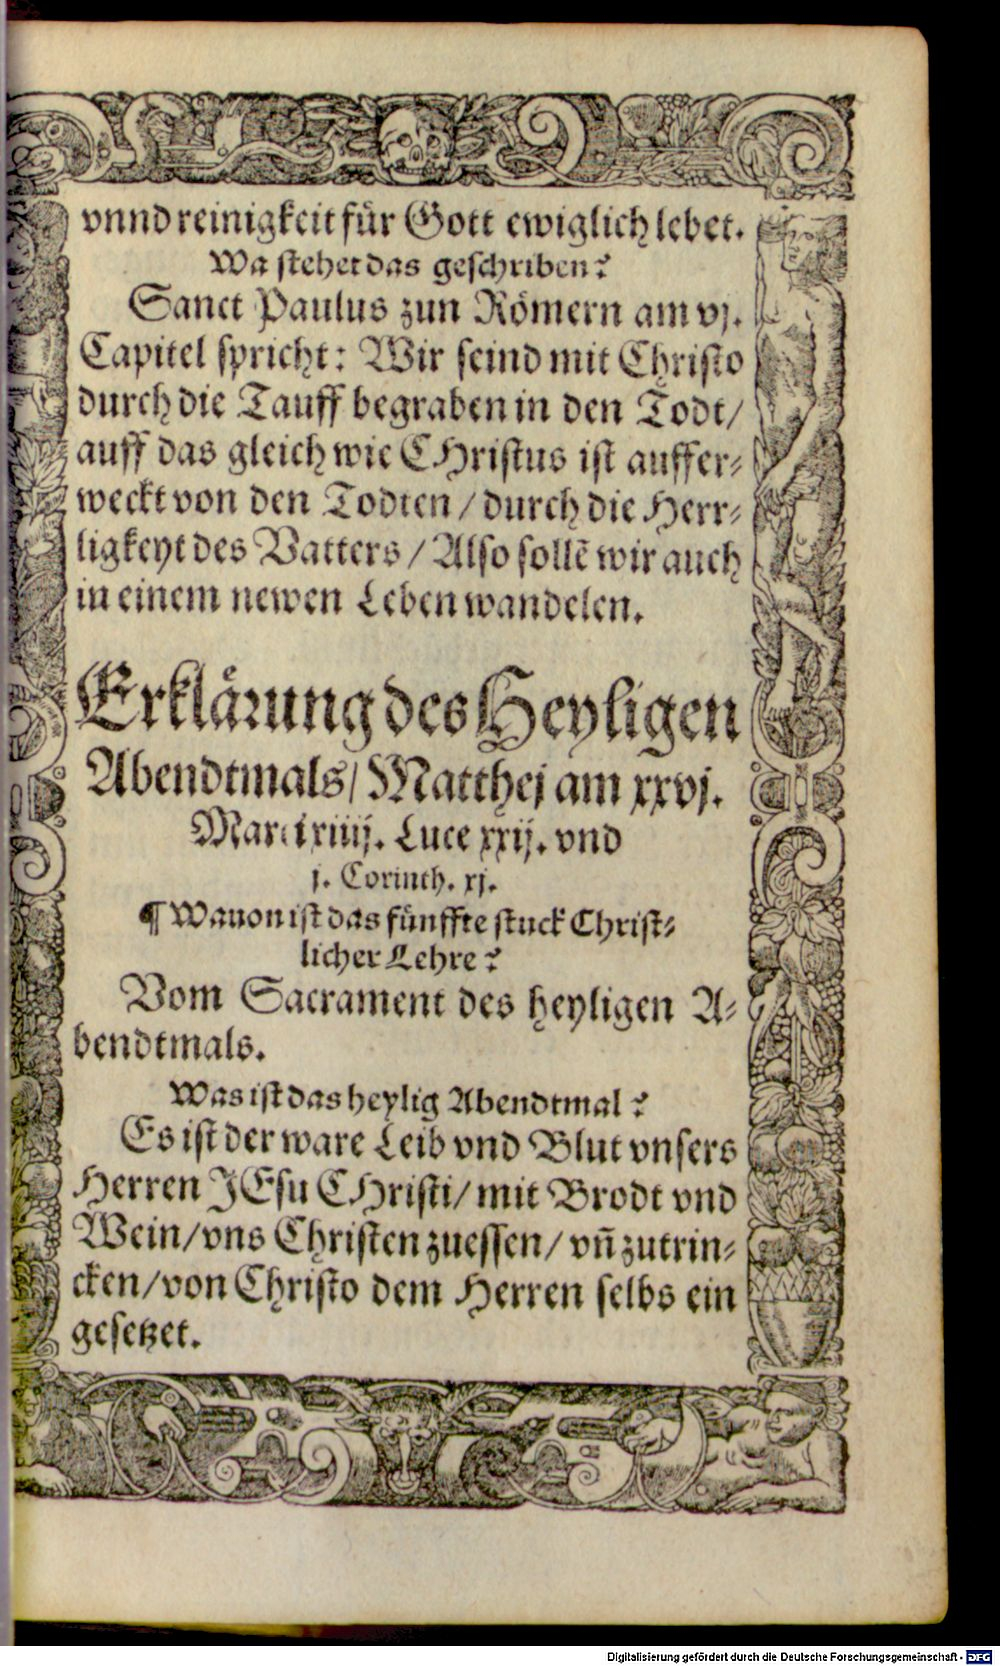 vnnd reinigkeit für Gott ewiglich lebet.
Wa stehet das geschriben?
Sanct Paulus zun Römern am vj.
Capitel spricht: Wir seind mit Christo
durch die Tauff begraben in den Todt/
auff das gleich wie CHristus ist auffer⸗
weckt von den Todten / durch die Herr⸗
ligkeyt des Vatters / Also sollẽ wir auch
in einem newen Leben wandelen.
Erklärung des Heyligen
Abendtmals/ Matthej am xxvj.
Marci xiiij. Luce xxij. vnd
j. Corinth. xj.
¶ Wauon ist das fünffte stuck Christ⸗
licher Lehre?
Vom Sacrament des heyligen A⸗
bendtmals.
Was ist das heylig Abendtmal?
Es ist der ware Leib vnd Blut vnsers
Herren JEsu CHristi/ mit Brodt vnd
Wein/ vns Christen zuessen/ vñ zutrin⸗
cken/ von Christo dem Herren selbs ein
gesetzet.
Digitalisierung gefördert durch die Deutsche Forschungsgemeinschaft - DFG